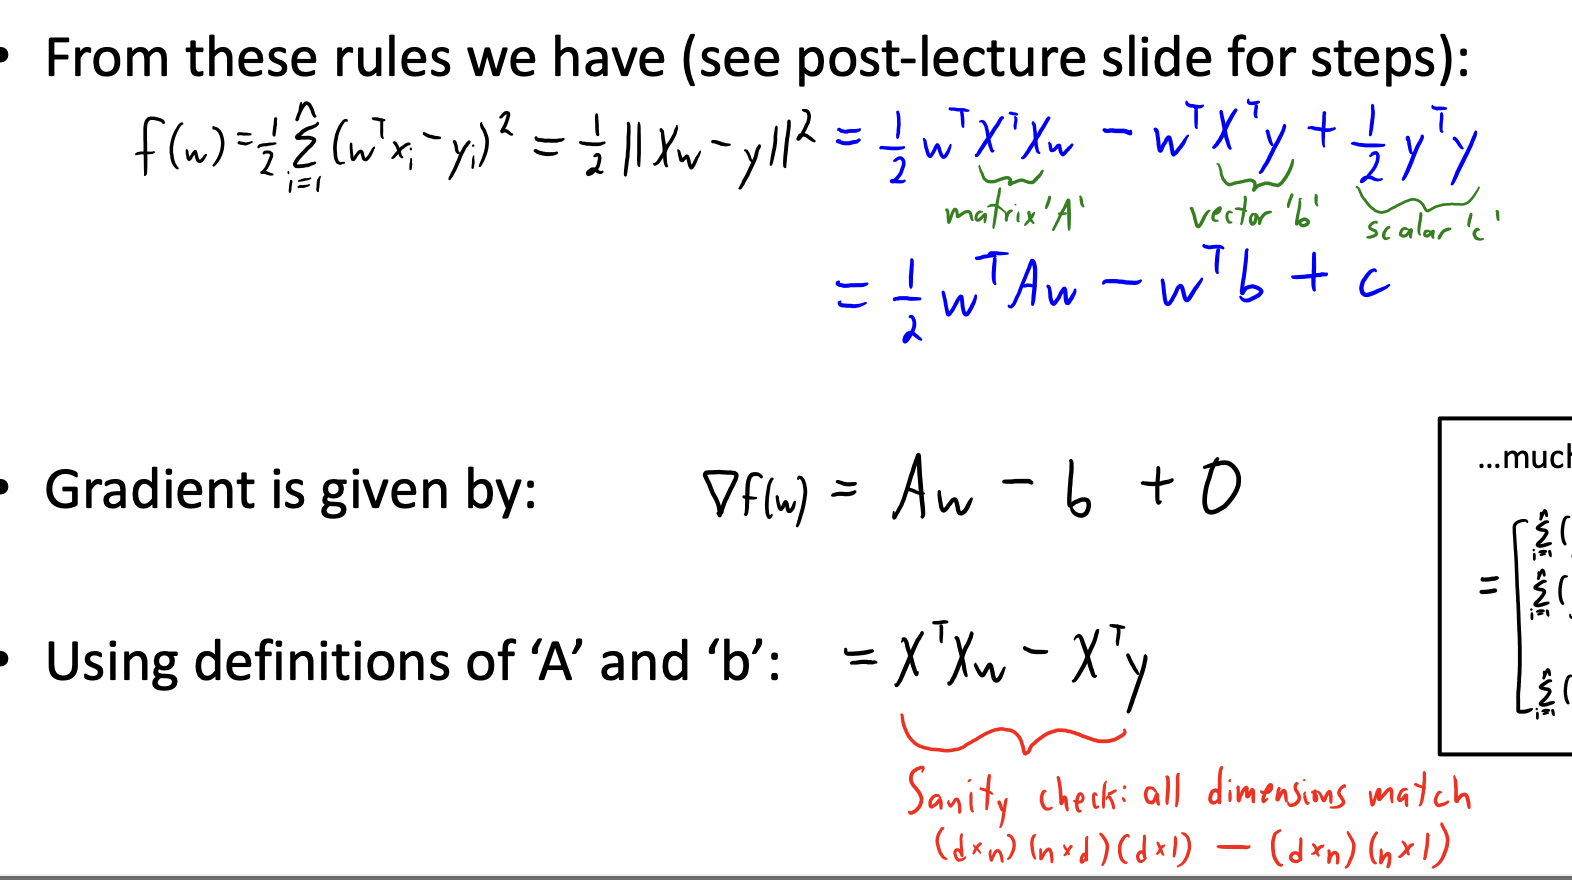 • From these rules we have (see post-lecture slide for steps):
f(w) = 1/2 Σ_{i=1}^n (wᵀxᵢ - yᵢ)² = 1/2 ||Xw - y||² = 1/2 wᵀXᵀXw - wᵀXᵀy + 1/2 yᵀy
matrix 'A' vector 'b' scalar 'c'
= 1/2 wᵀAw - wᵀb + c
• Gradient is given by: ∇f(w) = Aw - b + 0
• Using definitions of ‘A’ and ‘b’: = XᵀXw - Xᵀy
Sanity check: all dimensions match
(d×n)(n×d)(d×1) - (d×n)(n×1)
...much
= [ Σ_{i=1}^n (
Σ_{i=1}^n (
Σ_{i=1}^n (